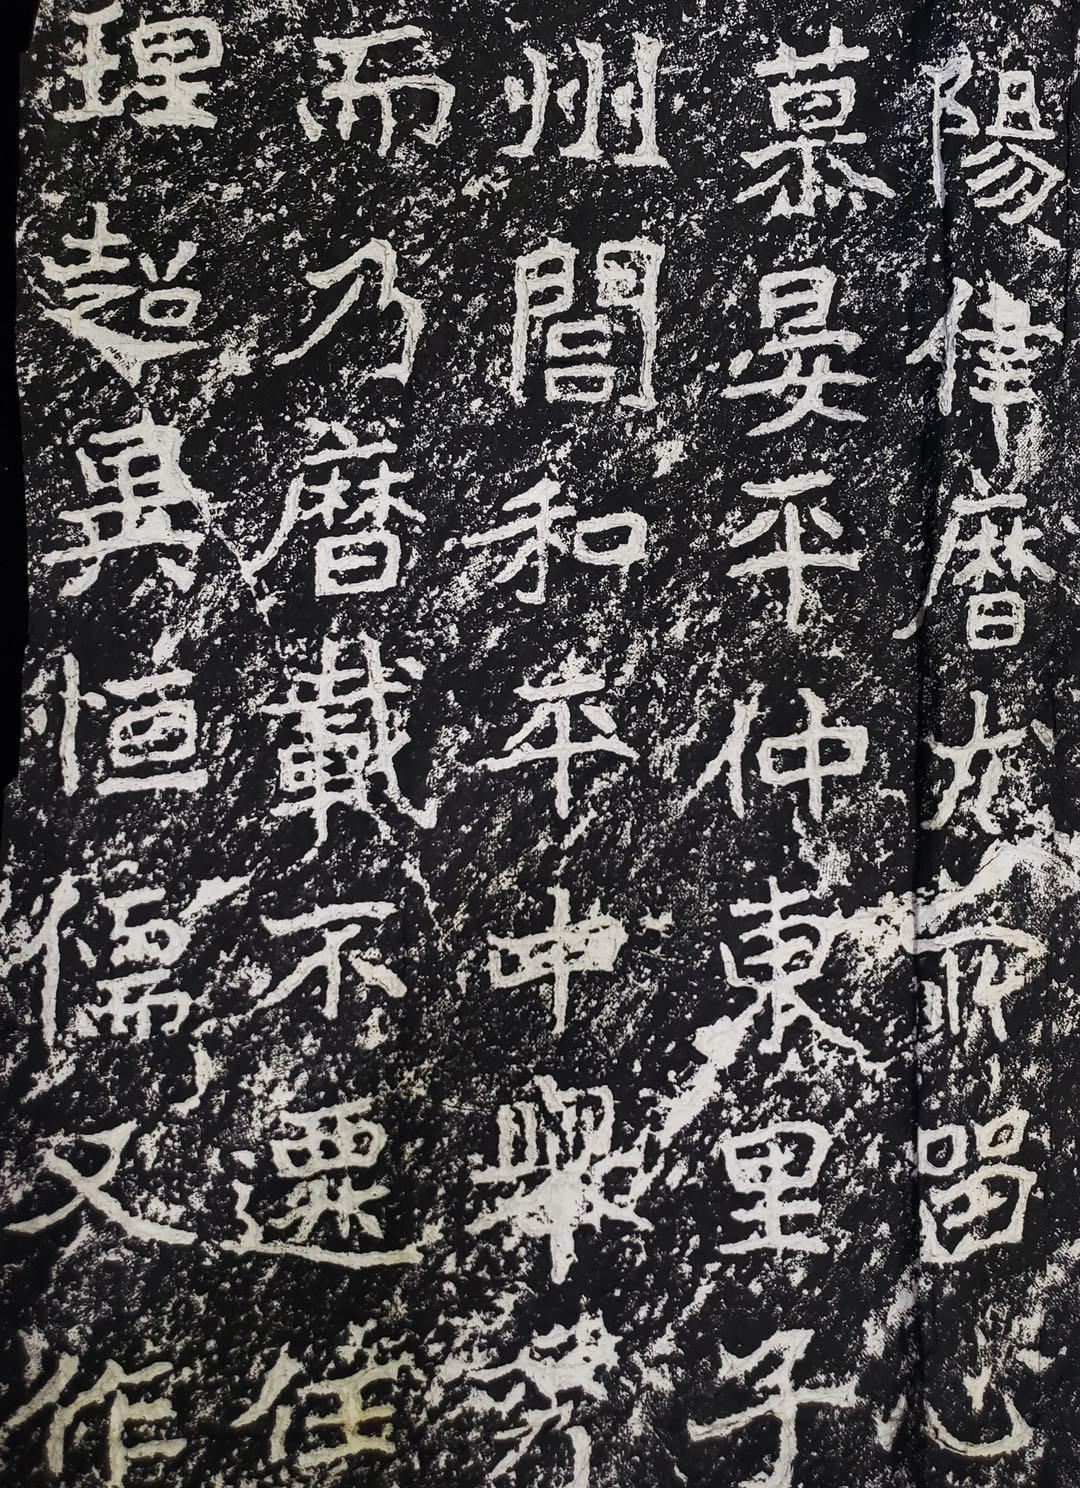 陽律曆尤所留心
慕晏平仲東里子
州閭和平中舉秀
而乃曆載不遷任
理超異恒儒又作